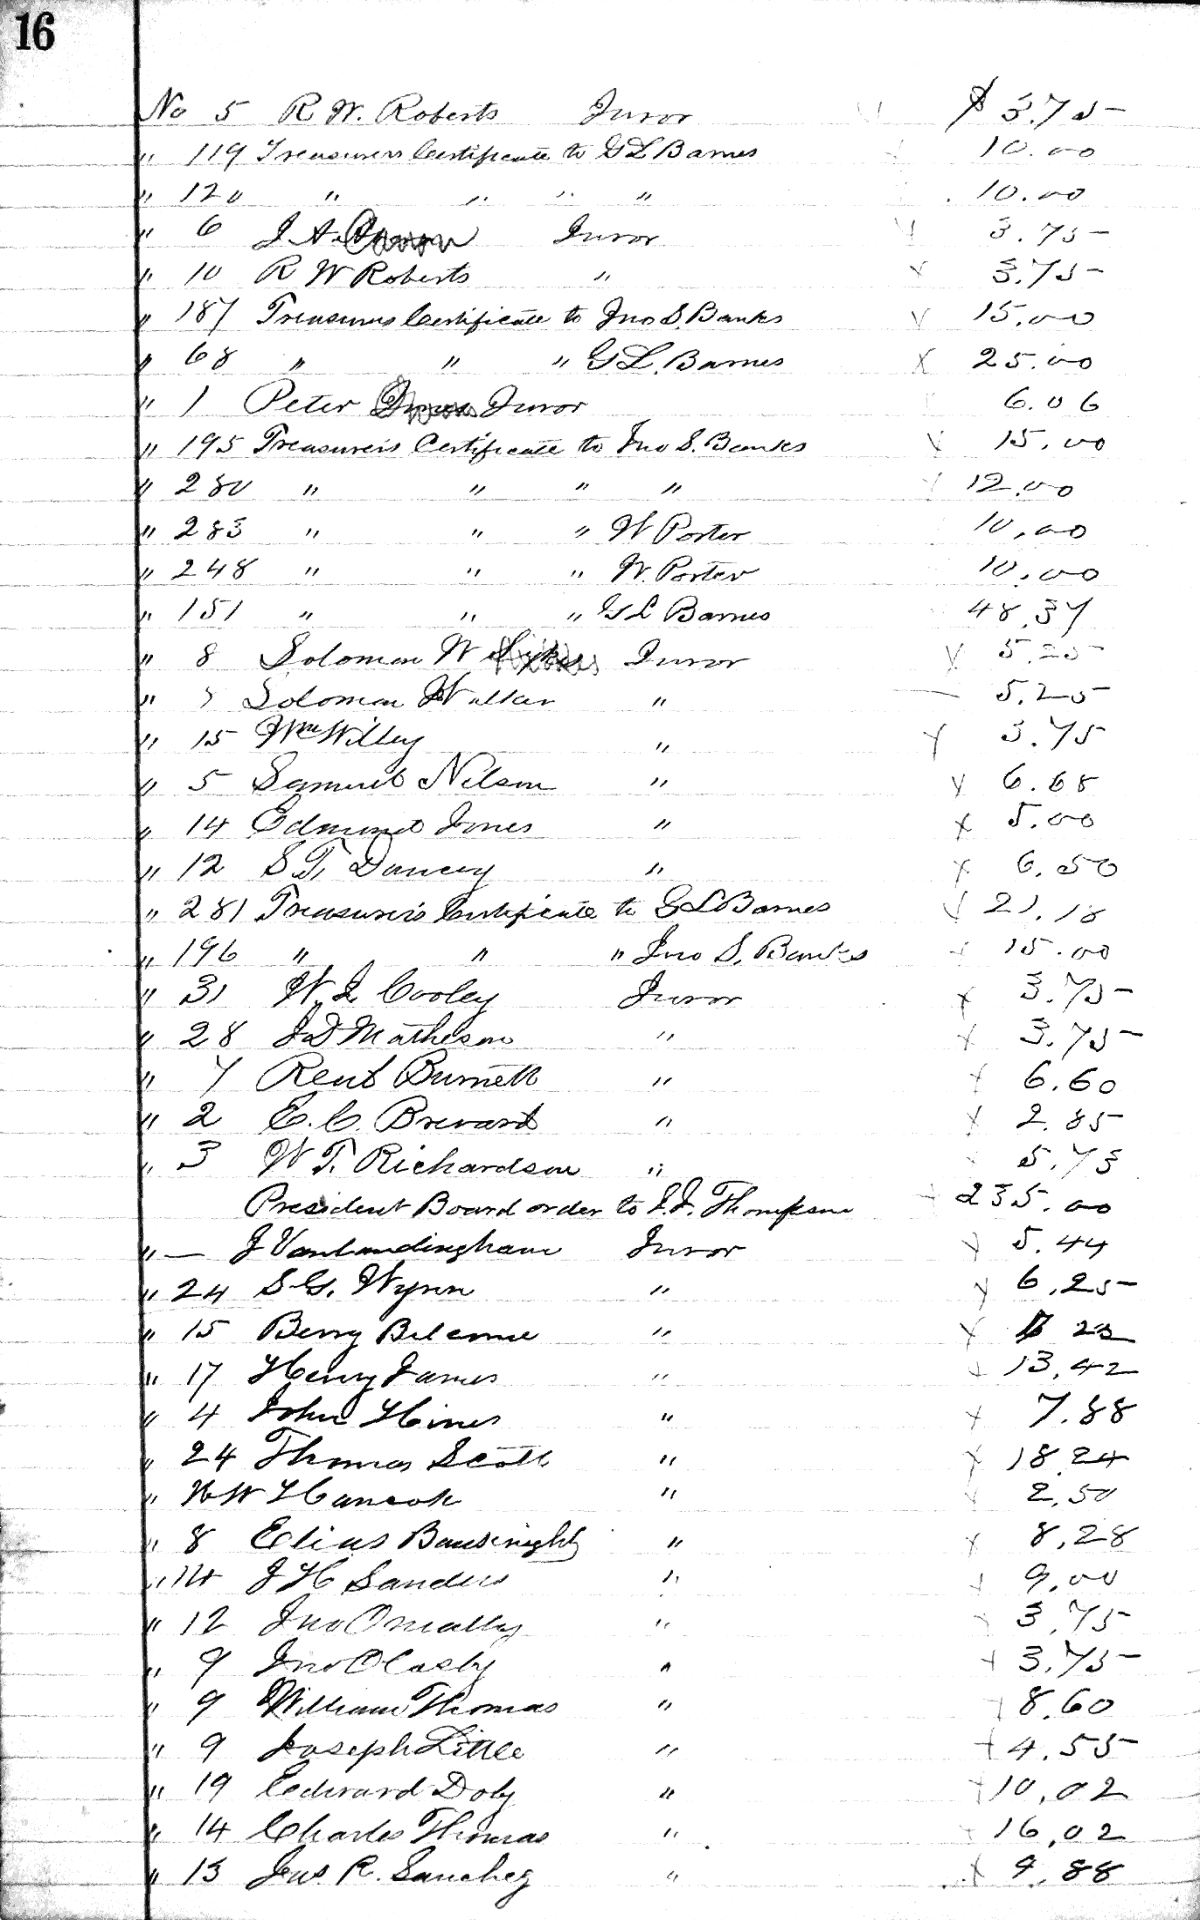 16
No 5 R. W. Roberts Juror $ 3.75
" 119 Treasurers Certificate to G L Barnes 10.00
" 120 " " " " 10.00
" 6 J. A. Juror 3.75
" 10 R W Roberts " 3.75
" 187 Treasurers Certificate to Jno S. Banks 15.00
" 68 " " " G L. Barnes 25.00
" 1 Peter Juror 6.06
" 195 Treasurer's Certificate to Jno S. Banks 15.00
" 280 " " " " 12.00
" 283 " " " W Porter 10.00
" 248 " " " W. Porter 10.00
" 151 " " " G L Barnes 48.37
" 8 Solomon W Juror 5.25
" Soloman Walker " 5.25
" 15 Wm Willey " 3.75
" 5 Samuel Nelson " 6.68
" 14 Edmund Jones " 5.00
" 12 S. T. Dancey " 6.50
" 281 Treasurer's Certificate to G L Barnes 21.18
" 196 " " " Jno S. Banks 15.00
" 31 W. J. Cooley Juror 3.75
" 28 J D Matheson " 3.75
" 7 Reub Burnett " 6.60
" 2 E. C. Brevard " 2.85
" 3 W. T. Richardson " 5.73
President Board order to J. J. Thompson 235.00
" — J Vanlandingham Juror 5.44
" 24 S. G. Wynn " 6.25
" 15 Berry "
" 17 Henry James " 13.42
" 4 John Hines " 7.88
" 24 Thomas Scott " 18.24
" W W Hancock " 2.50
" 8 Elias Bauknight " 8.28
" 14 J H Sanders " 9.00
" 12 Jno O " 3.75
" 9 Jno O Casly " 3.75
" 9 William Thomas " 8.60
" 9 Joseph Little " 4.55
" 19 Edward Doby " 10.02
" 14 Charles Thomas " 16.02
" 13 Jas. R. Sanchez " 9.88